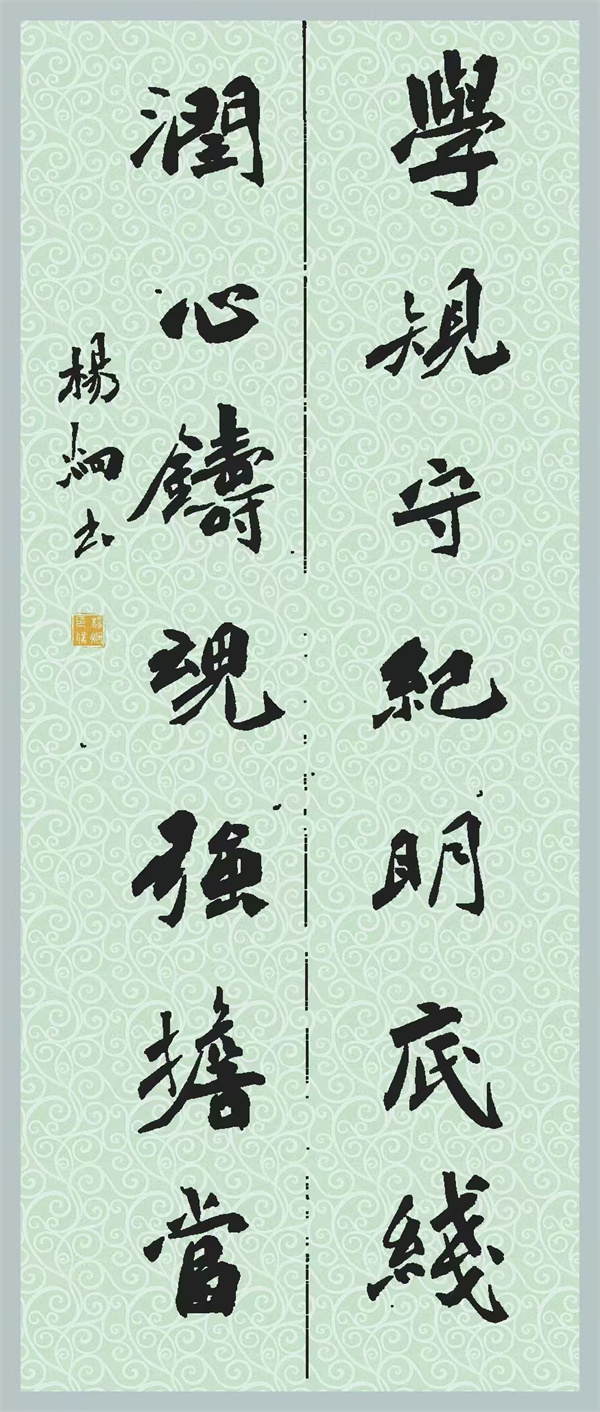 學規守紀明底綫
潤心鑄魂強擔當
楊炯書